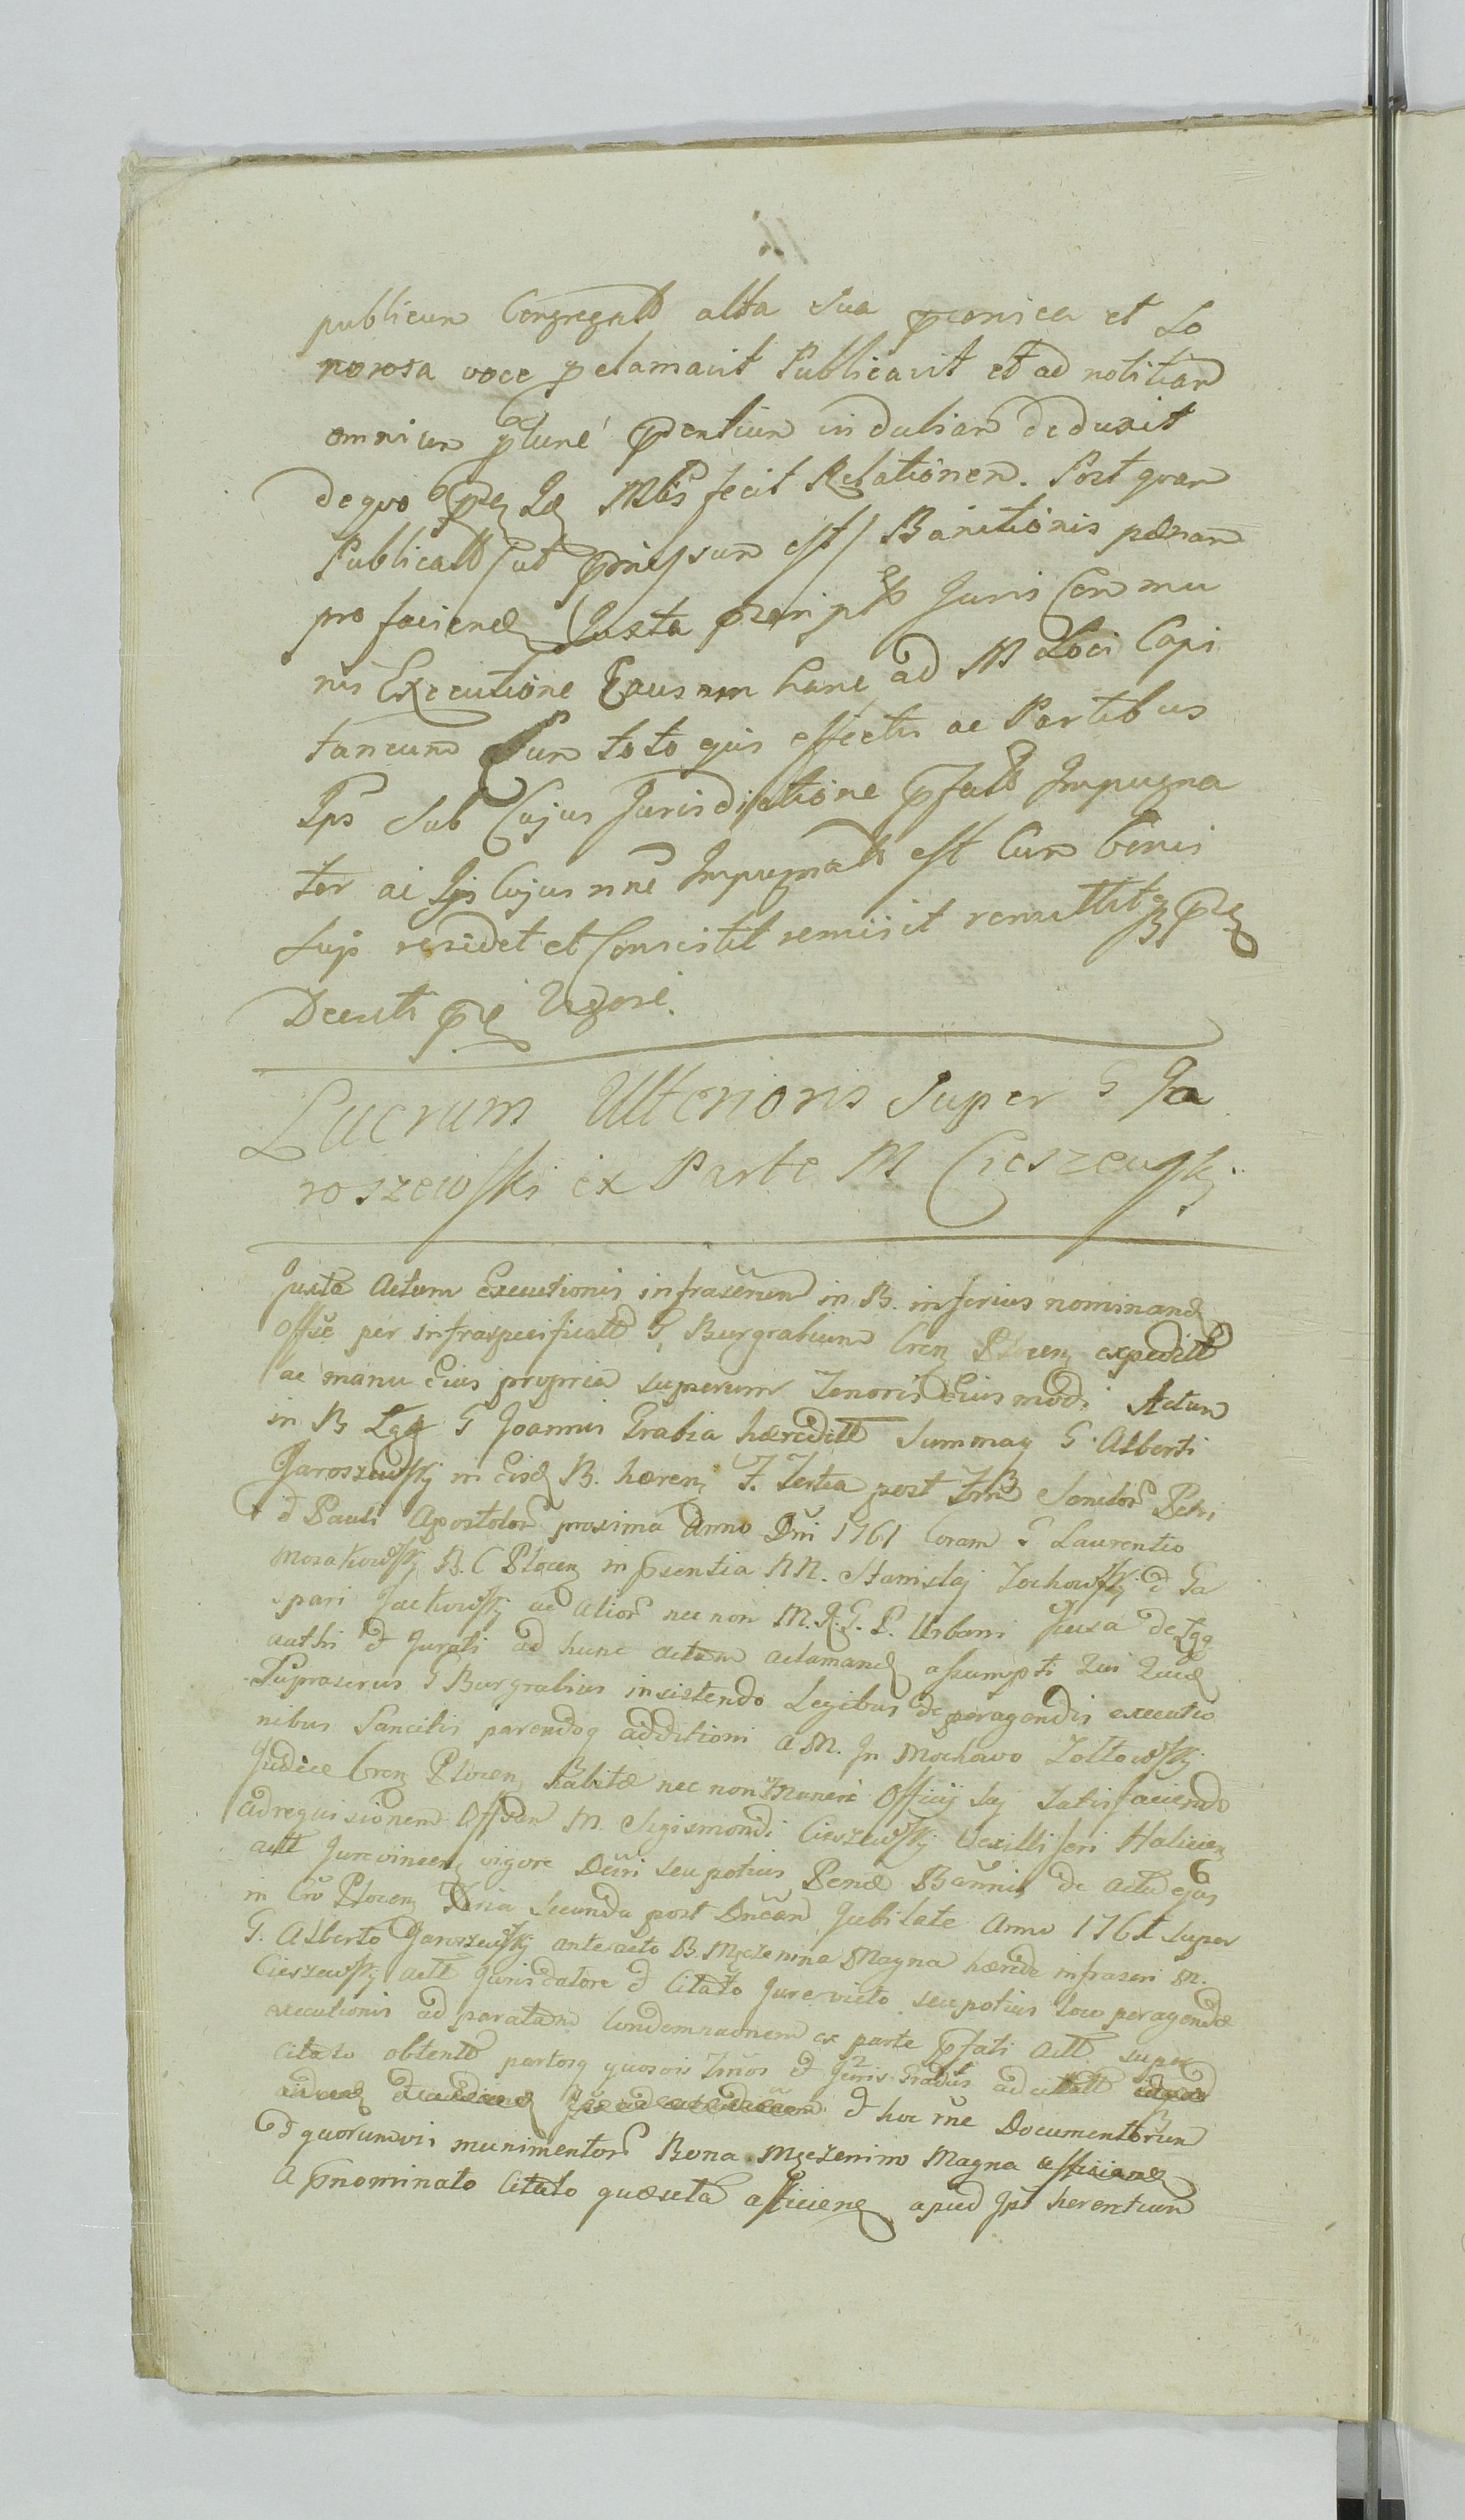 publicum Congregatt alta sua praeonica et So
norosa voce proclamavit Publicavit et ad notitiam
omnium plurie praesentium in dubiam deduxit
de quo praes Iud Mtis fecit Relationem. Post quam
Publicatt (ut praemissum est) Banitionis paenam
pro faciend Juxta praescript Juris Commu
nis Executione Causam hanc ad M Loci Capi
taneum Cum toto ejus effectu ac Partibus
Ips Sub Cujus Jurisdictione praefatt Impugna
tor ai Ips Cujus nne Impugnatt est Cum bonis
suis residet et Consistit remisit remittitq praes
Decreti prae Vigore.
Lucrum Ulterioris Super G Ja
roszewski ex Parte M Cieszewskj
Juxta Actum Executionis infrascrium in B. inferius nominand
Offse per infraspecificatt G, Burgrabium Cren Plocen expeditt
ac manu Eius propria supscrum Tenoris Eius modi Actum
in B Lgg G Joannis Grabia hæreditt Summay G. Alberti
Jaroszewskj in Eisd B. hæren F. Tertia post Fm Sanctor Petri
et Pauli Apostolor proxima Anno Dni 1761 Coram G Laurentio
Mosakowskj B. C Plocen in prsentia NN. Stanislaj Zochowskj et Ga
spari Jackowskj ac Alior nec non M. R. G. P. Urbani de Lgg
authi et Jurati ad hunc actum aclamand assumpti Qui Quid
Suprascrus G Burgrabius insistendo Legibus de peragendis executio
nibus Sancitis parendoq additioni a M. In Mochowo Zoltowskj
Judice Cren Plocen habitæ nec non Muneri Officij Suj Satisfaciendo
ad requisionem Offsam M. Sigismondi Cieszewskj Vexilliferi Halicien
actt Jurevincen vigore Decri seu potius Penæ Bannis de Actu ejus
in Cro Plocen Feria Secunda post Dncam Jubilate Anno 1761 super
G. Alberto Jaroszewskj anteacto B. Mężenino Magna hærede infrascri M.
Cieszewskj actt Juris datore et Citato Jurevicto seu potius loco peragendæ
executionis ad paratam Condemnaonem ex parte prfati actt super
citato obtentt partosq quosvis Tmos et Juris Gradus ad citatt
et hoc rne Documentorum
et quorumvis munimentor Bona Mężenino Magna afficiend
A prnominato Citato quæsita afficiend apud Ips herentium